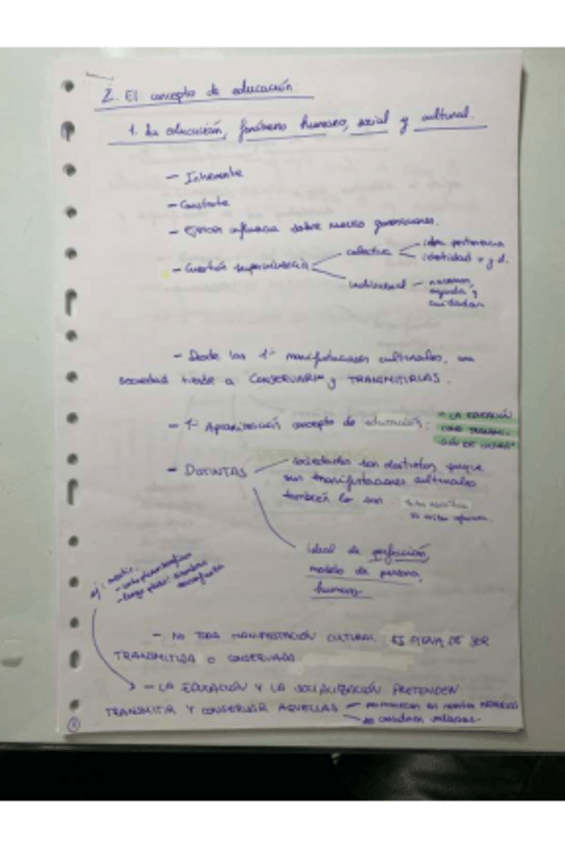 2. El concepto de educación.
1. La educación, fenómeno humano, social y cultural.
- Inherente
- Constante
- Ejercen influencia sobre nuevas generaciones.
- Cuestión supervivencia
colectiva
idea pertenencia
identidad
individual
- nacemos,
ayuda y
cuidados
- Desde las 1ª manifestaciones culturales, una
sociedad tiende a CONSERVARLAS y TRANSMITIRLAS.
- 1ª Aproximación concepto de educación:
"LA EDUCACIÓN
COMO TRANSMI-
SIÓN DE CULTURA"
- DISTINTAS
sociedades son distintas porque
sus manifestaciones culturales
también lo son.
ideal de perfección,
modelo de persona,
humano.
ej:
- NO TODA MANIFESTACIÓN CULTURAL ES DIGNA DE SER
TRANSMITIDA O CONSERVADA
- LA EDUCACIÓN Y LA SOCIALIZACIÓN PRETENDEN
TRANSMITIR Y CONSERVAR AQUELLAS
- permanecen en nuestra MEMORIA
- se consideran valiosas.